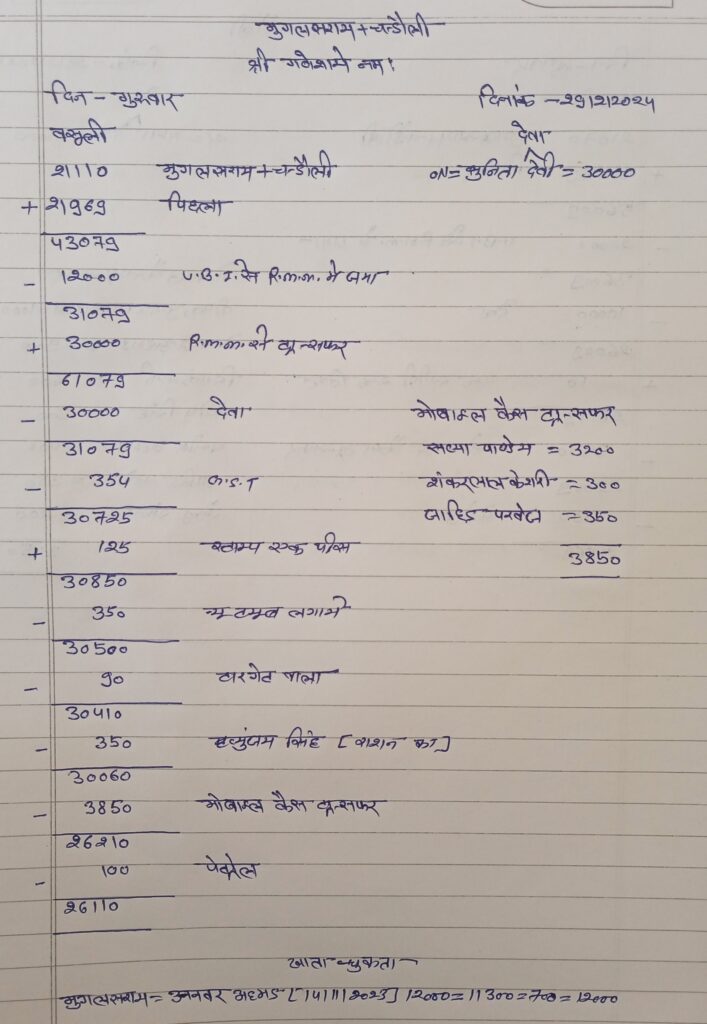 मुगलसराय + चन्दौली
श्री गणेशाय नमः
दिन - गुरुवार दिनांक - 29/2/2024
वसूली देवा
21110 मुगलसराय + चन्दौली ON = सुनिता देवी = 30000
+ 21969 पिछला
43079
- 12000 U.B.I. से R.m.m. में जमा
31079
+ 30000 R.m.m. से ट्रान्सफर
61079
- 30000 देवा मोबाइल कैस ट्रान्सफर
31079 सध्या पाण्डेय = 3200
- 354 शंकरलाल केशरी = 300
30725 जाहिद परवेज = 350
+ 125 स्टाम्प एक पीस 3850
30850
- 350 लगाये
30500
- 90 टारगेट वाला
30410
- 350 सिंह [राशन का]
30060
- 3850 मोबाइल कैस ट्रान्सफर
26210
- 100 पेट्रोल
26110
खाता चुकता -
मुगलसराय = अनवर अहमद [14/11/2023] 12000 = 11300 = 700 = 12000